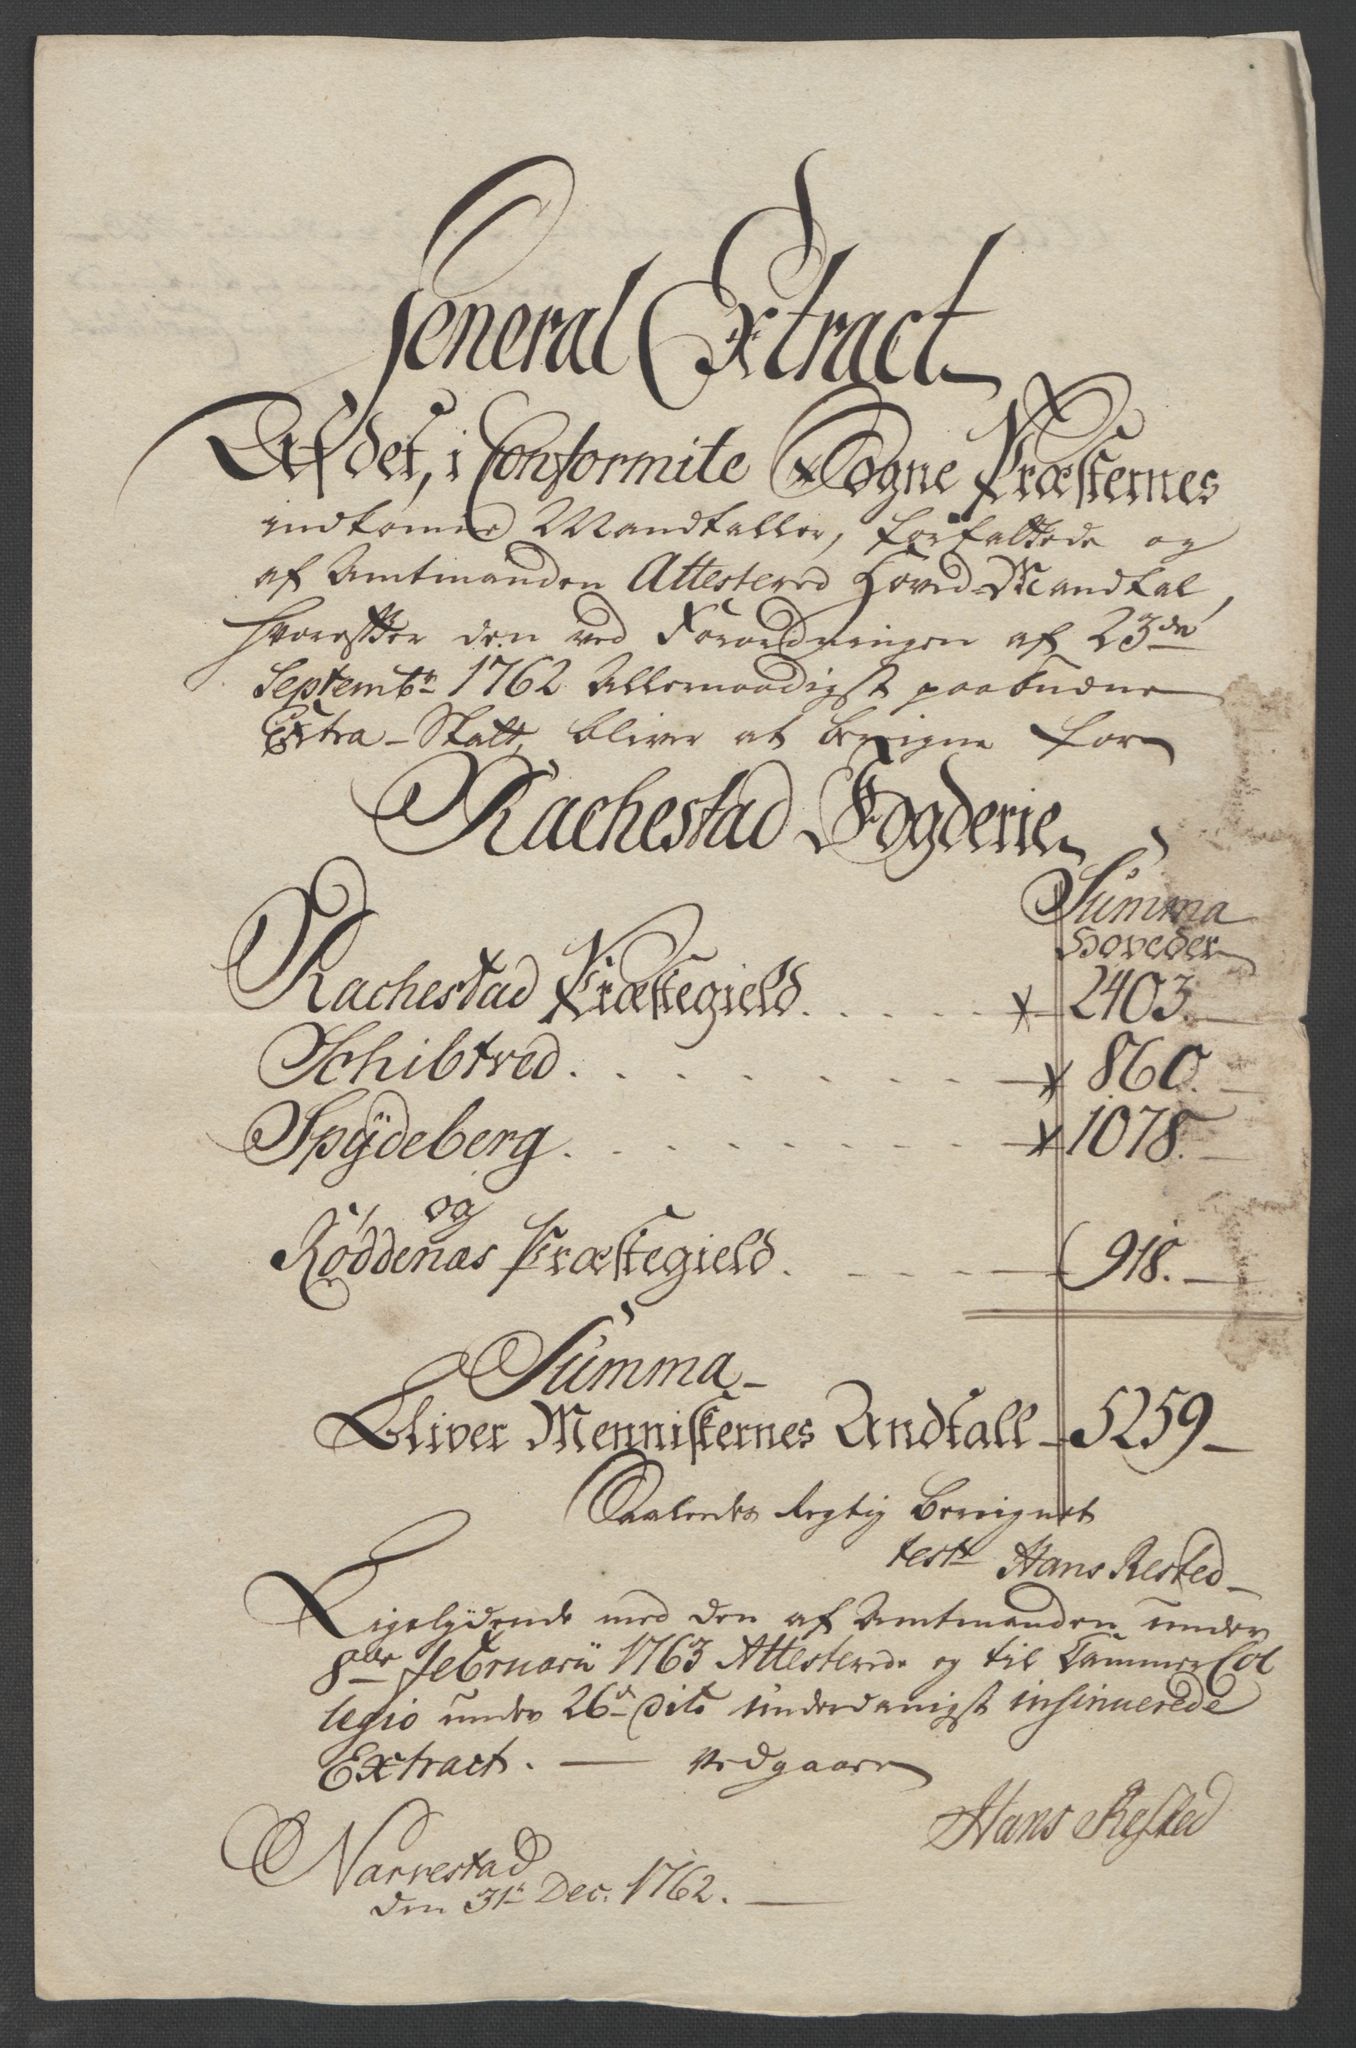 General Extract
Af det, i Conformite Sogne Præsternes
indkomne Mandtaller, forfattede og
af Amtmanden Attestered Hoved-Mandtal,
hvorefter den ved Forordningen af 23de
Septembr 1762 Allernaadigst paabudne
Extra-Skatt, bliver at beregne for
Rachestad Fogderie
Summa
Hoveder
Rachestad Præstegield . . . . . 2403.
Schibtved . . . . . . . 860.
Spÿdeberg . . . . . . . 1078.
og
Röddenæs Præstegield . . . . 918.
Summa
Bliver Menniskernes Andtall 5259
Saaledes rigtig beregnet
test Hans Rested
Ligelÿdende med den af Amtmanden under
8de Februarii 1763 Attesterede og til Cammer Col
legio under 26d dito underdanigst insinuerede
Extract. — vedgaaer
Hans Rested
Narvestad
den 31t Dec. 1762.